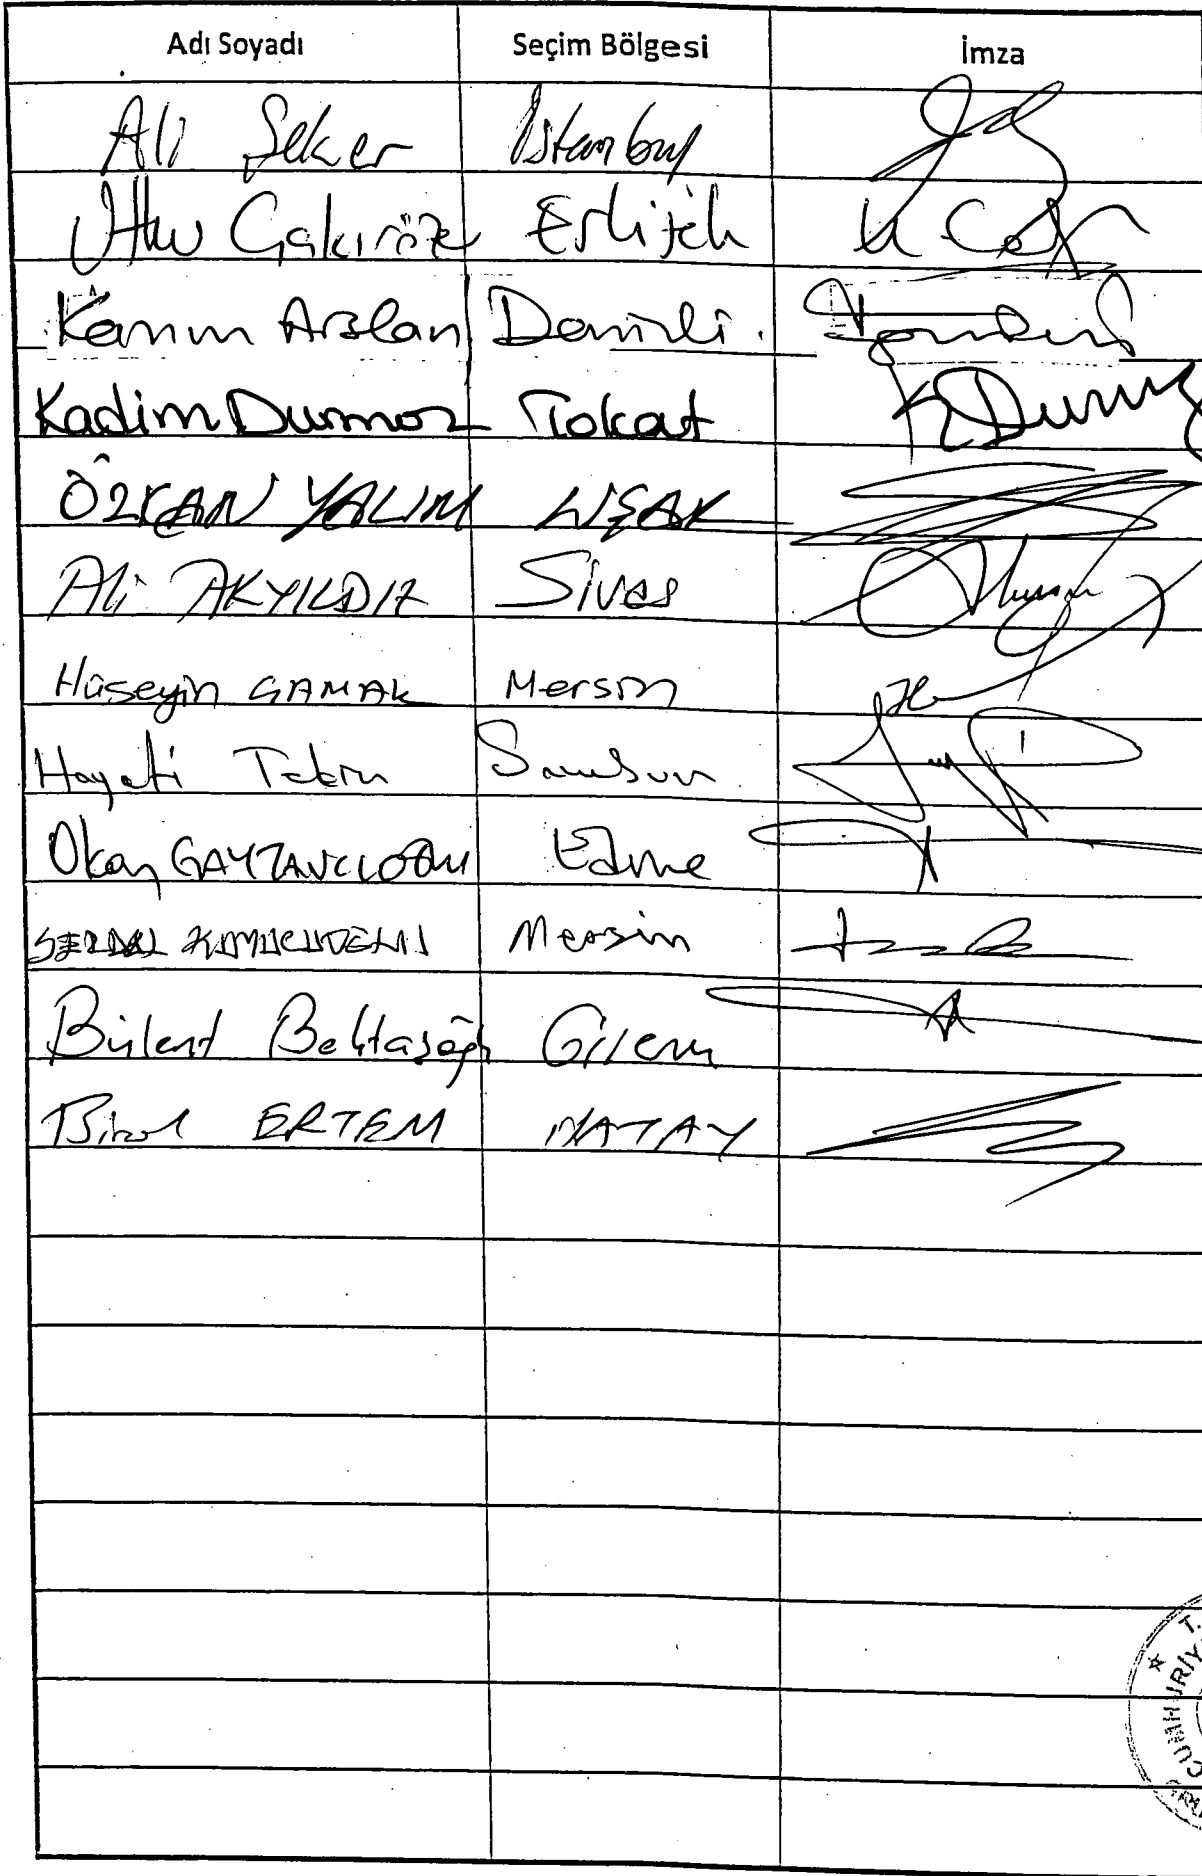 Adı Soyadı Seçim Bölgesi İmza
Ali Şeker İstanbul
Utku Çakırözer Eskişehir
Kazım Arslan Denizli.
Kadim Durmaz Tokat K Durmaz
ÖZKAN YALIM UŞAK
Ali AKYILDIZ Sivas
Hüseyin ÇAMAK Mersin
Hayati Tekin Samsun
Okan GAYTANCIOĞLU Edirne
SERDAL KUYUCUOĞLU Mersin
Bülent Bektaşoğlu Giresun
Birol ERTEM HATAY